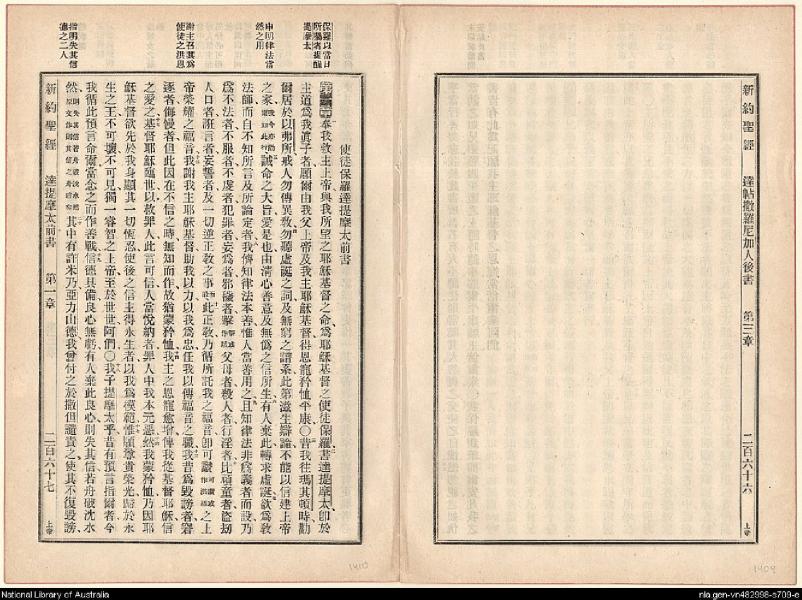 新約聖經 達帖撒羅尼加人後書 第三章 二百六十六 上帝
保羅以當日
所囑者提醒
提摩太
申明律法當
然之用
謝主召其為
使徒之洪恩
指明失其信
德之二人
使徒保羅達提摩太前書
奉我救主上帝與我所望之耶穌基督之命為耶穌基督之使徒保羅書達提摩太卽於
主道為我眞子者願爾由我父上帝及我主耶穌基督得恩寵矜恤平康〇昔我往瑪其頓時勸
爾居於以弗所戒人勿傳異教勿聽虛誕之詞及無窮之譜系此第滋生辯論不能以信建上帝
之家誡命之大旨愛是也由淸心善意及無僞之信所生有人棄此轉求虛誕欲為敎
法師而自不知所言及所論定者我儕知律法本善惟人當善用之且知律法非為義者而設乃
為不法者不服者不虔者犯罪者妄為者邪穢者弒父母者殺人者行淫者比頑童者盜劫
人口者誑言者妄誓者及一切逆正敎之事此正敎乃循所託我之福音卽可讚之上
帝榮耀之福音我謝我主耶穌基督助我以力以我為忠任我以傳福音之職我昔為毀謗者窘
逐者侮慢者但此因在不信之時無知而作故猶蒙矜恤我主之恩寵愈增俾我從基督耶穌信
之愛之基督耶穌臨世以救罪人此言可信人當悅納者罪人中我本元惡然我蒙矜恤乃因耶
穌基督欲先於我身顯其一切恆忍使後之信主得永生者以我為模範惟願尊貴榮光歸於永
生之王不可壞不可見獨一睿智之上帝至於世世阿們〇我子提摩太乎昔有預言指爾者今
我循此預言命爾當念之而作善戰信德具備良心無虧有人棄此良心則失其信若舟破沈水
然其中有許米乃亞力山德我曾付之於撒但譴責之使其不復毀謗
新約聖經 達提摩太前書 第一章 二百六十七 上帝
1410
1409
National Library of Australia
nla.gen-vn482998-s709-e